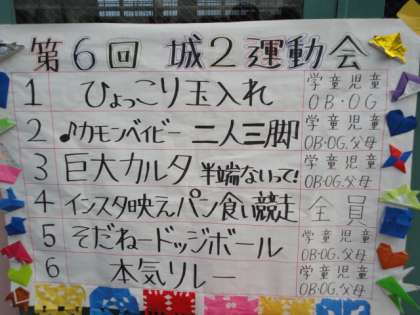 第6回 城2運動会
1 ひょっこり玉入れ 学童児童 OB・OG
2 ♪カモンベイビー 二人三脚 学童児童 OB・OG,父母
3 巨大カルタ 半端ないって! 学童児童 OB・OG,父母
4 インスタ映えパン食い競走 全員
5 そだねードッジボール 学童児童 OB・OG,父母
6 本気リレー 学童児童 OB・OG,父母